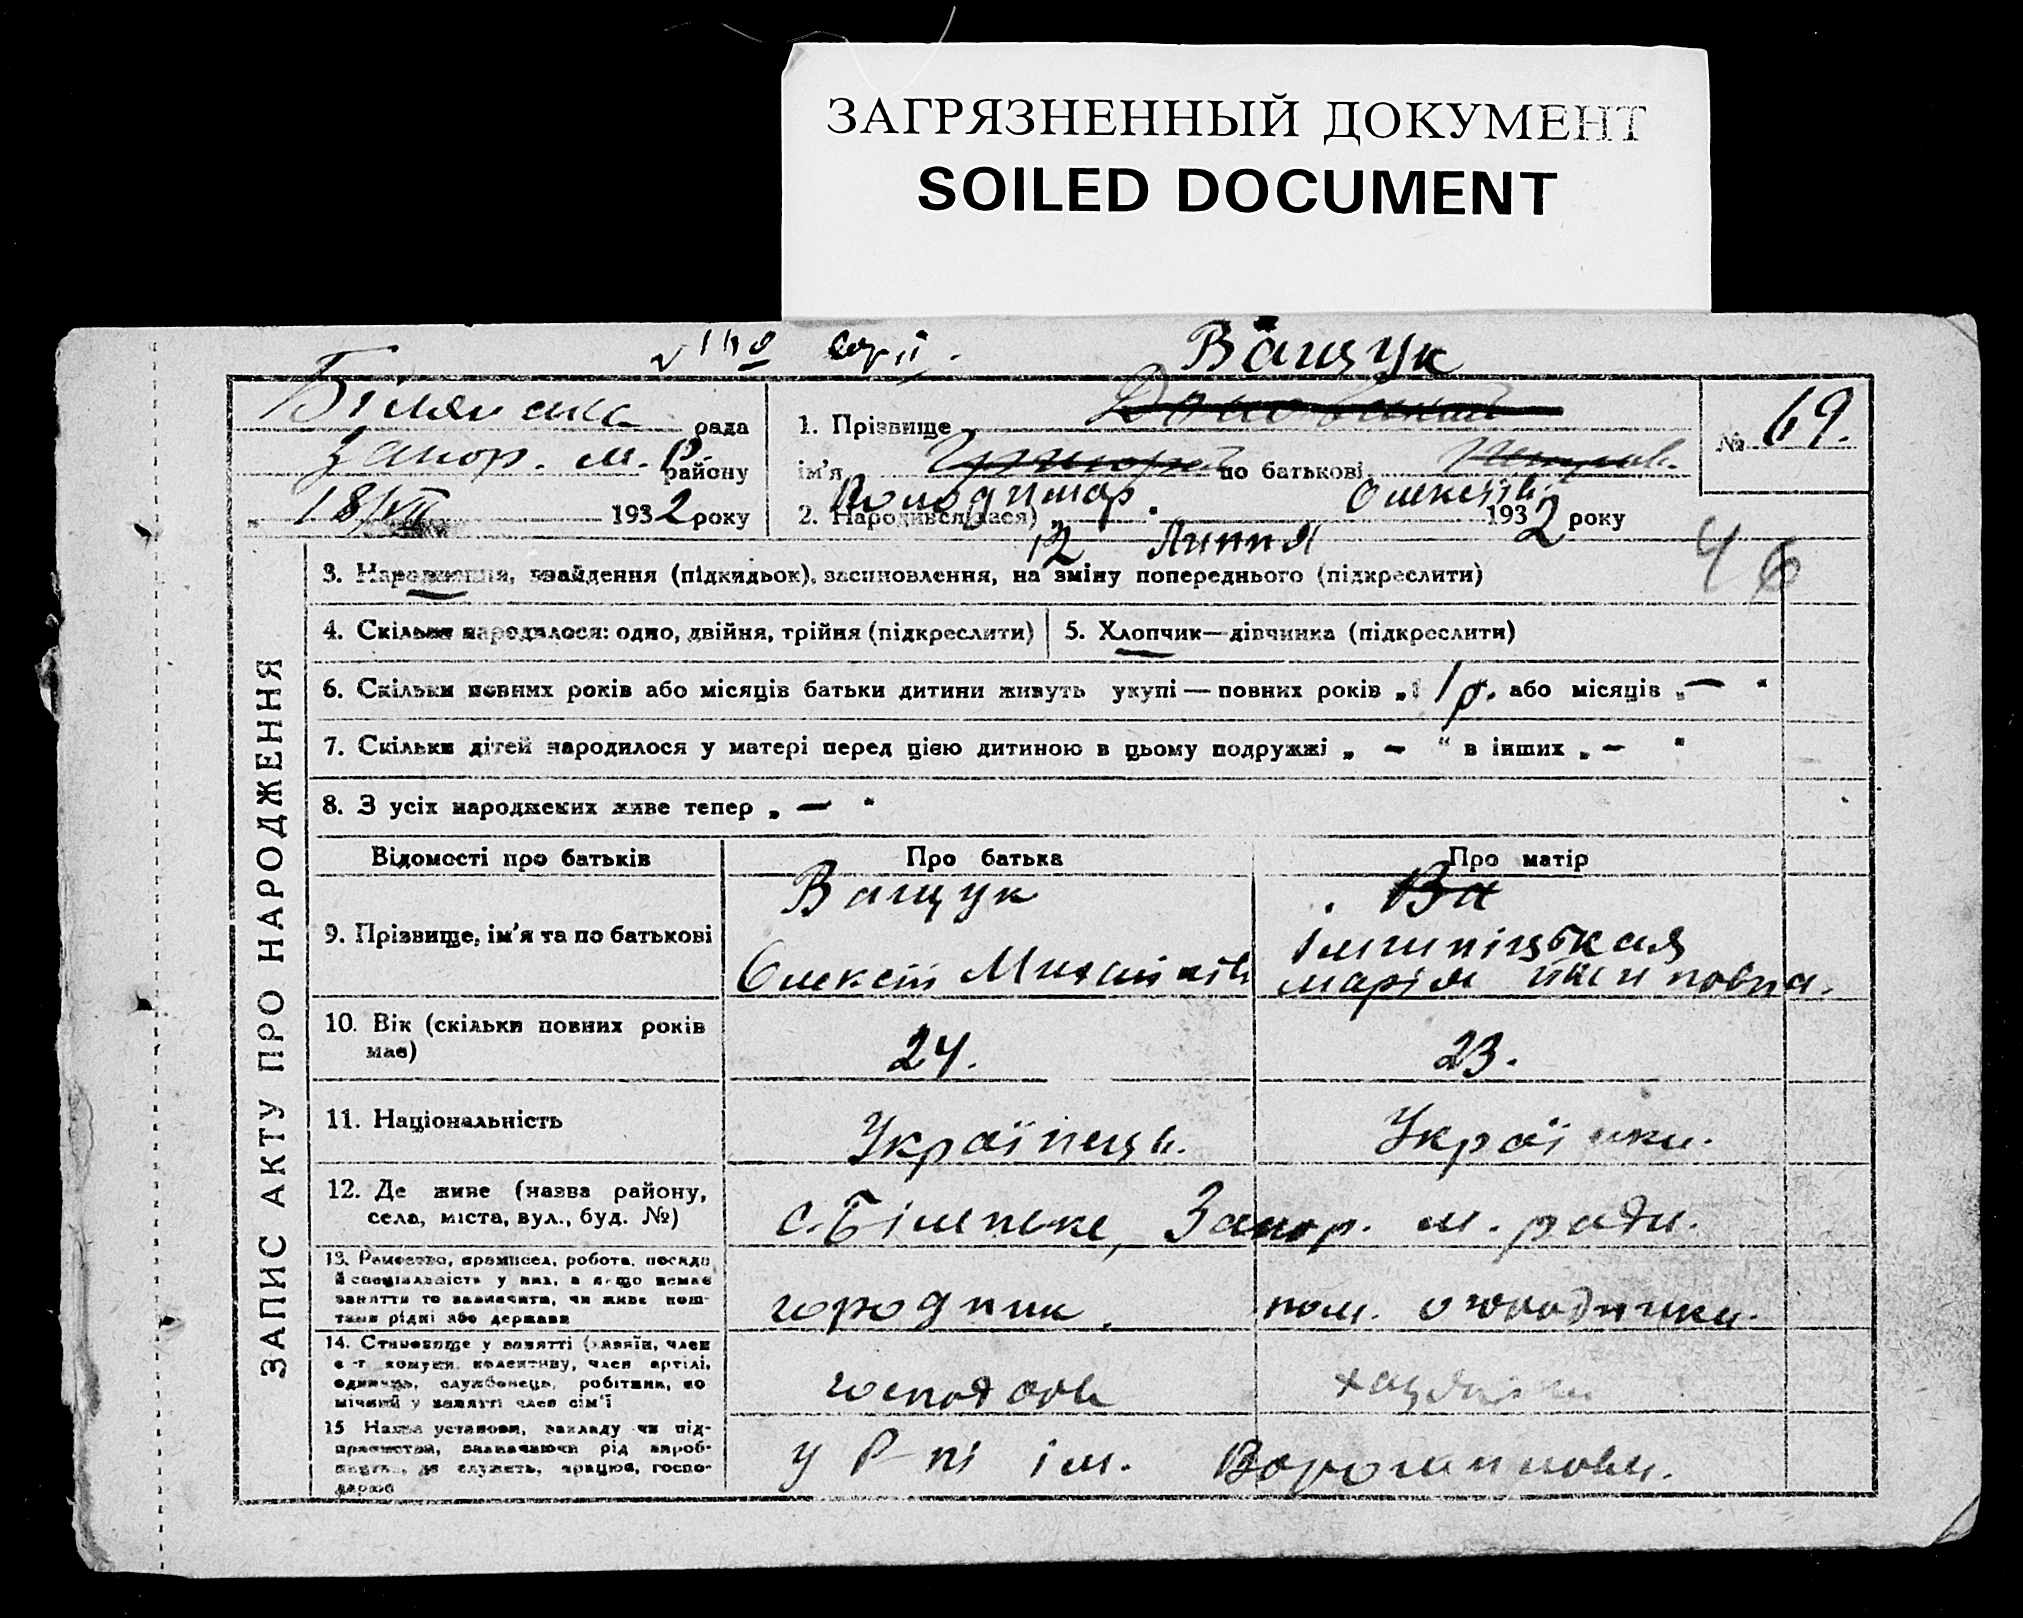 ЗАГРЯЗНЕННЫЙ ДОКУМЕНТ
SOILED DOCUMENT
Ващук
рада
Запор. м. р. району
18/VII 1932 року
1. Прізвище
ім'я по батькові
Володимир. Олексїїв.
2. Народився(лася) 1932 року
12 Липня
№ 69.
46
ЗАПИС АКТУ ПРО НАРОДЖЕННЯ
3. Народження, знайдення (підкидьок), засиновлення, на зміну попереднього (підкреслити)
4. Скільки народилося: одно, двійня, трійня (підкреслити)
5. Хлопчик—дівчинка (підкреслити)
6. Скільки повних років або місяців батьки дитини живуть укупі — повних років „ 1 р. або місяців „ — “
7. Скільки дітей народилося у матері перед цією дитиною в цьому подружжі „ — “ в інших „ — “
8. З усіх народжених живе тепер „ — “
Відомості про батьків
Про батька
Про матір
9. Прізвище, ім'я та по батькові
Ващук
Ва
Олексій
марія
10. Вік (скільки повних років має)
24.
23.
11. Національність
Українець.
Українка.
12. Де живе (назва району, села, міста, вул., буд. №)
с. Біленьке, Запор. м. ради.
13. Ремество, промисел, робота, посада й спеціяльність у них, а якщо немає заняття то зазначити, чи живе коштами рідні або держави
городник.
пом. огородника.
14. Становище у занятті (хазяїн, член с.-г. комуни, колективу, член артілі, одинець, службовець, робітник, помічний у занятті член сім'ї
господар
15 Назва установи, закладу чи підприємства, зазначаючи рід виробництва, де служить, працює, господарює
у Р-пі ім. Ворошилова.